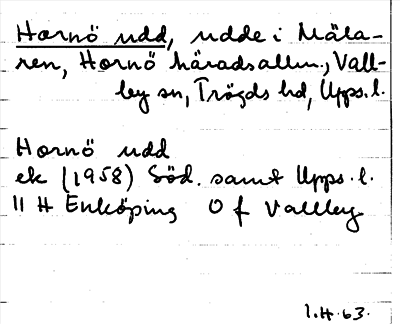 Hornö udd, udde i Mäla-
ren, Hornö häradsallm., Vall-
by sn, Trögds hd, Upps. l.
Hornö udd
ek (1958) Söd. samt Upps. l.
11 H Enköping O f Vallby
I.H. 63.